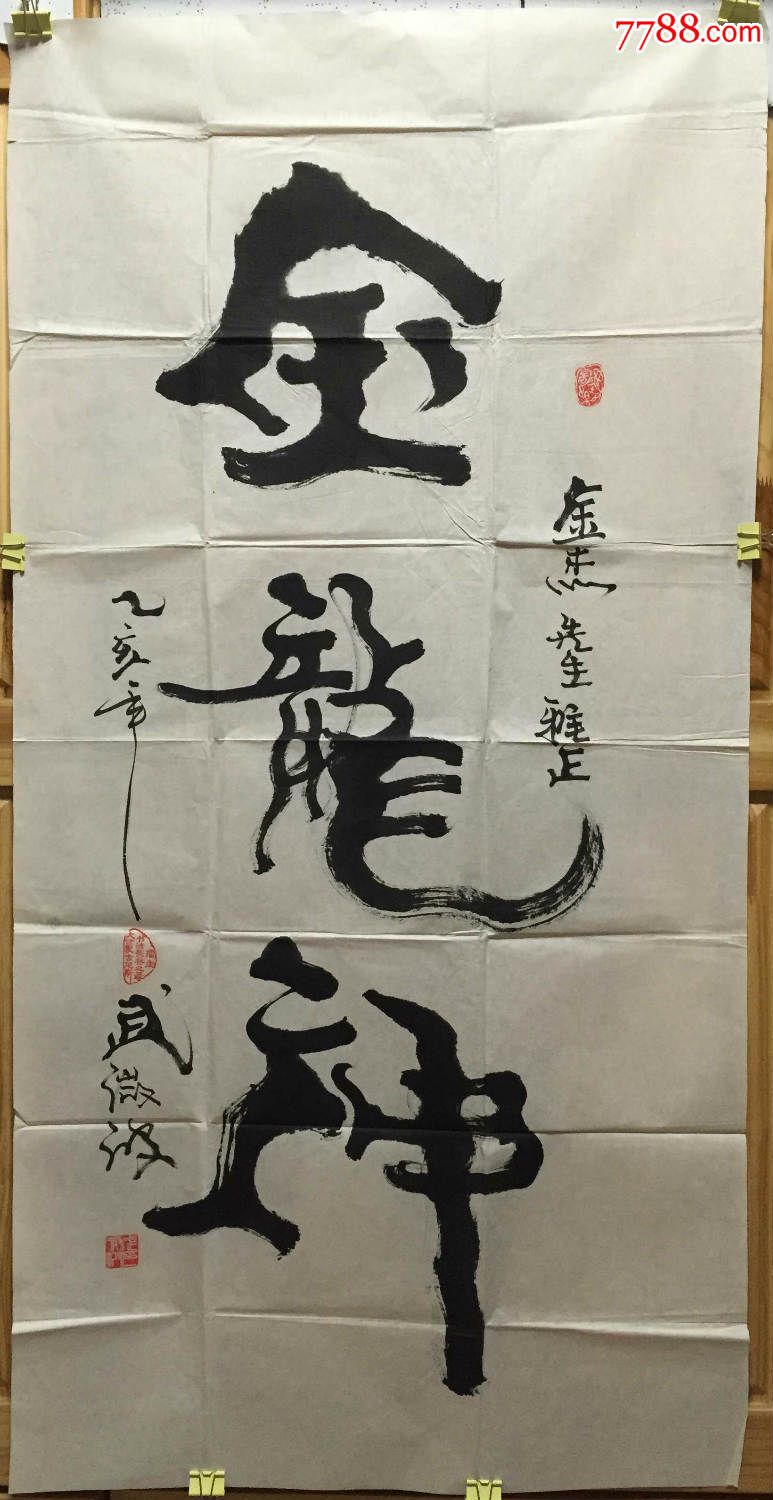 7788.com
金杰先生雅正
金龍神
乙亥年
武微波